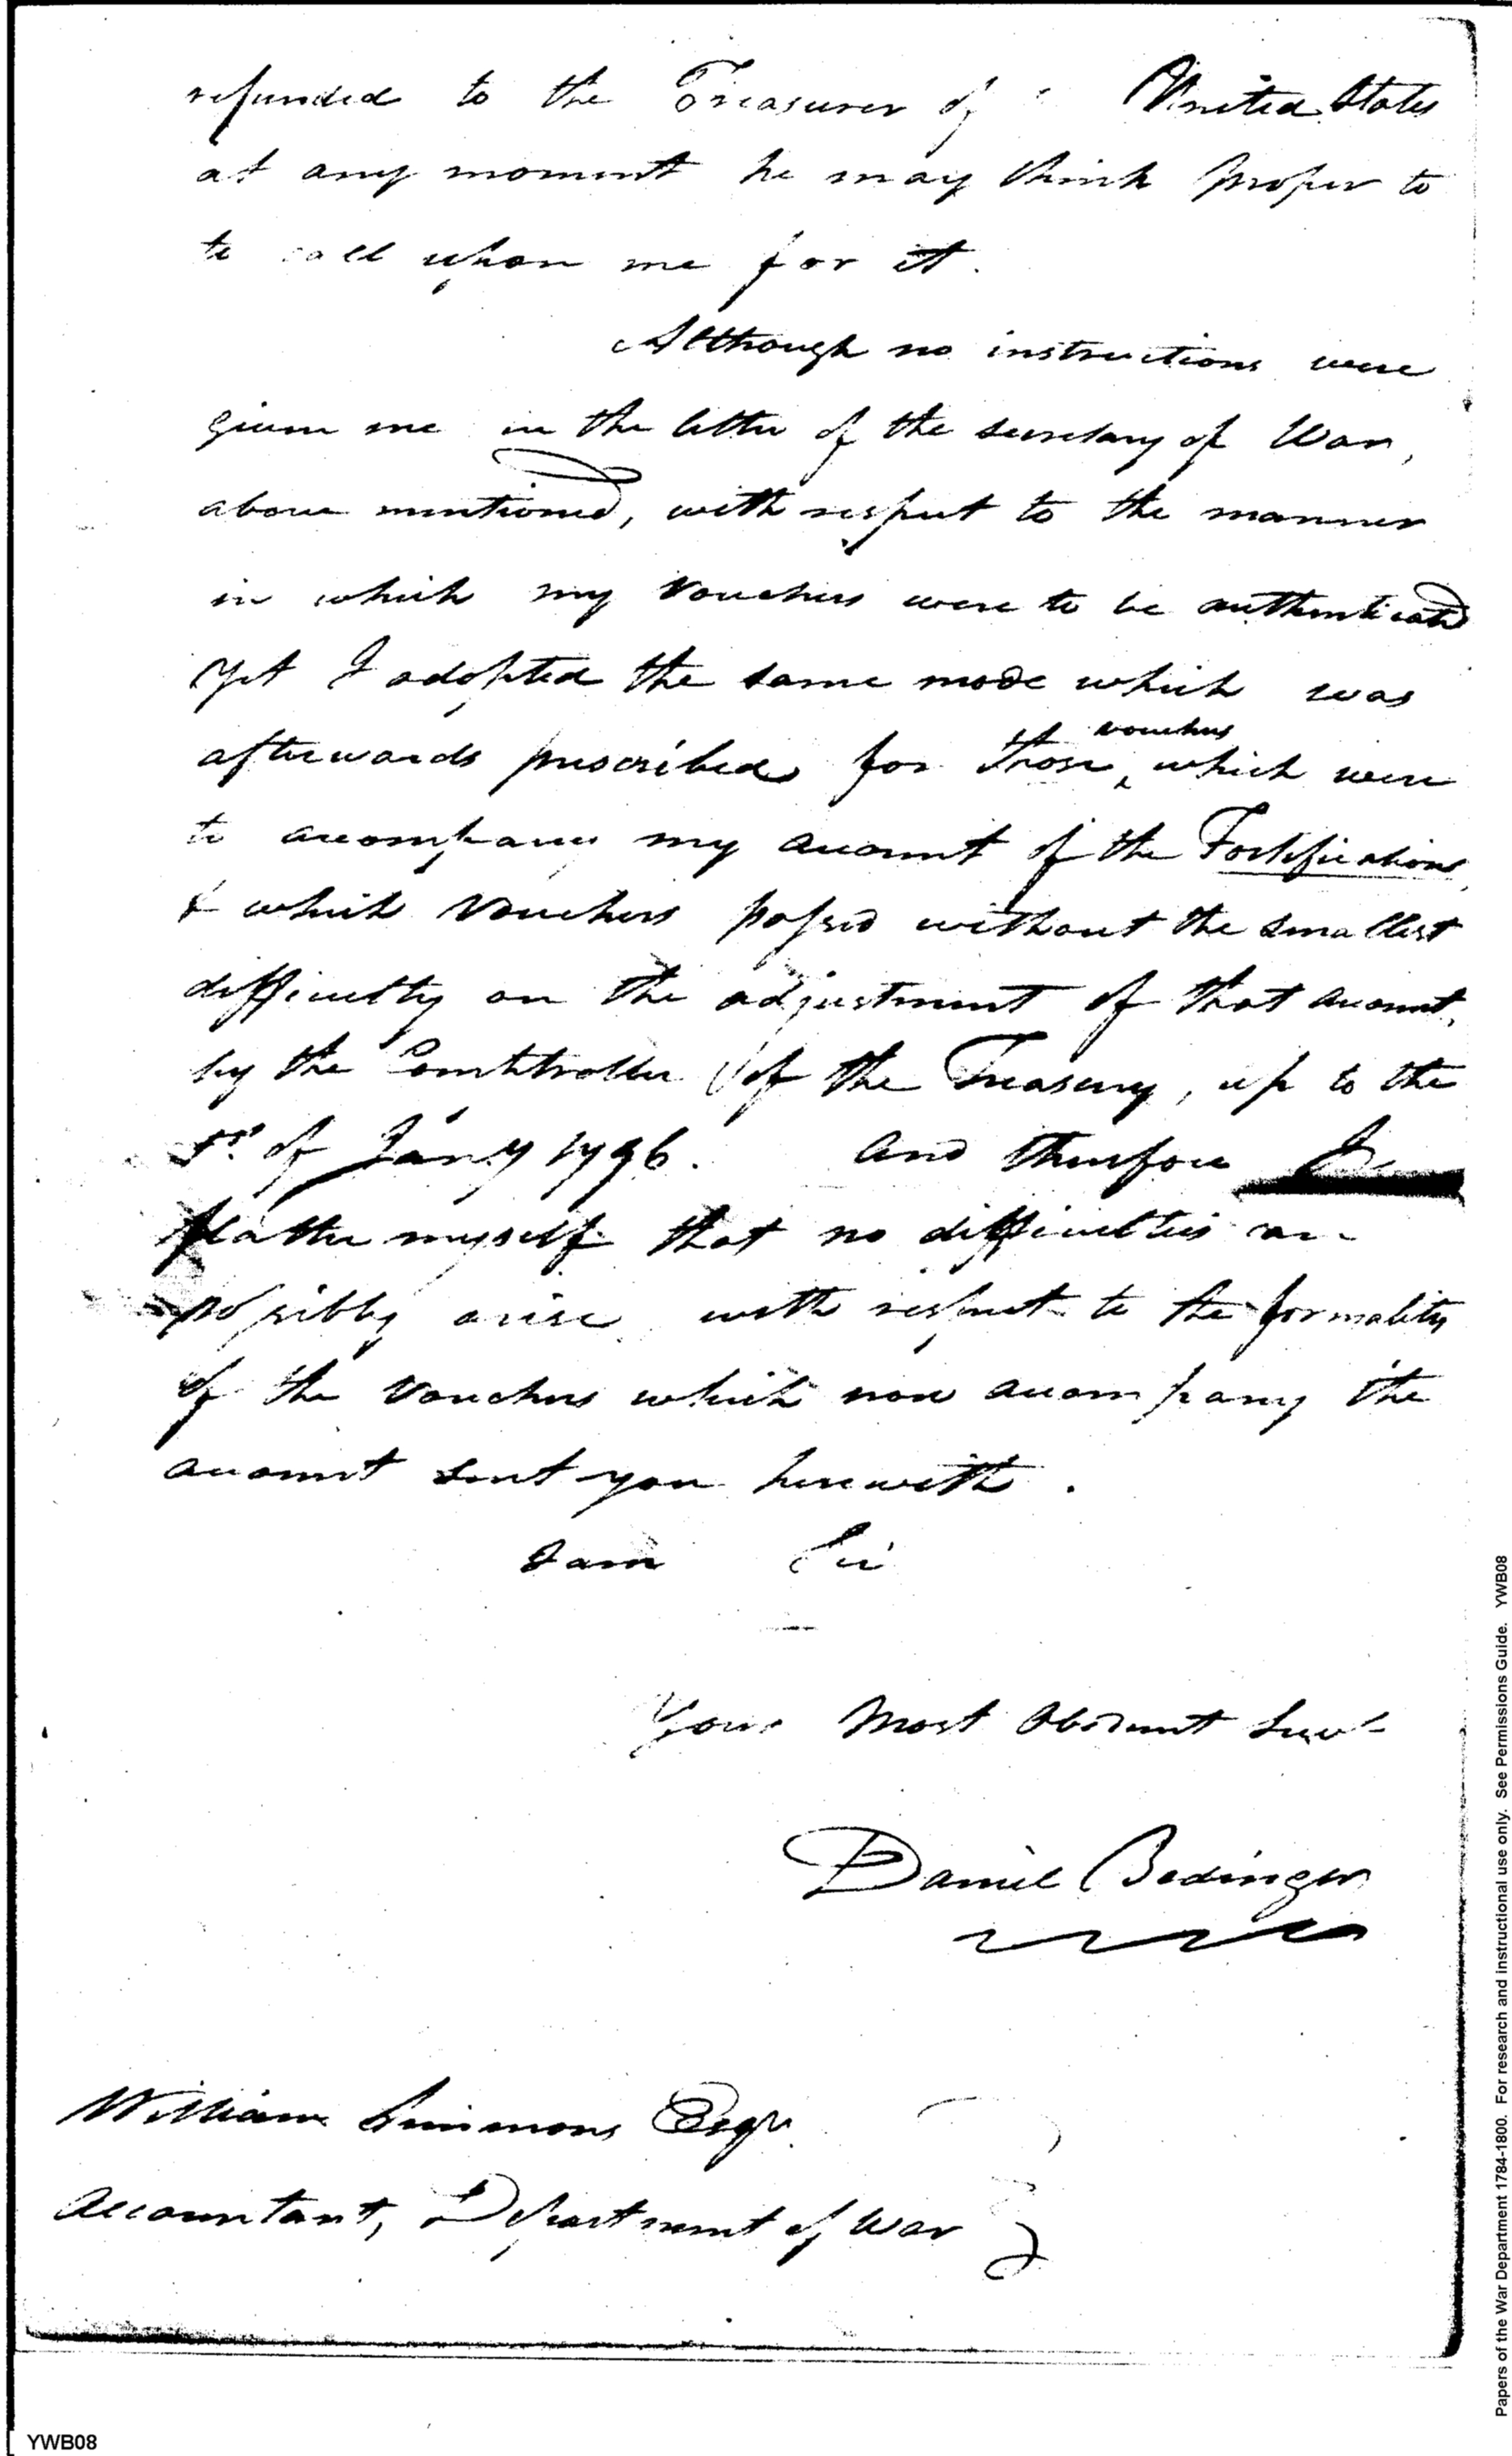 refunded to the Treasurer of United States
at any moment he may think proper to
to call upon me for it.
Although no instructions were
given me in the letter of the secretary of War,
above mentioned, with respect to the manner
in which my vouchers were to be authenticated
yet I adopted the same mode which was
vouchers
afterwards prescribed for those ‸ which were
to accompany my account of the Fortifications
& which vouchers passed without the smallest
difficulty on the adjustment of that account,
by the Comptroller of the Treasury, up to the
of Jany 1796. And therefore I
flatter myself that no difficulties can
possibly arise with respect to the formality
of the vouchers which now accompany the
account sent you herewith.
I am Sir
Your Most Obedient Servt
Daniel Bedinger
William Simmons Esqr.
Accountant, Department of War
YWB08
Papers of the War Department 1784-1800. For research and instructional use only. See Permissions Guide. YWB08